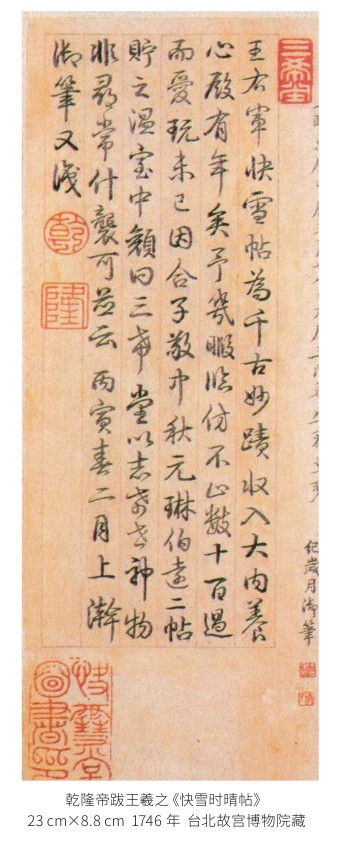 三希堂
紀歲月御筆
王右軍快雪帖為千古妙蹟收入大内養
心殿有年矣予幾暇臨仿不止數十百過
而愛玩未已因合子敬中秋元琳伯遠二帖
貯之溫室中顏曰三希堂以志希世神物
非尋常什襲可並云丙寅春二月上澣
御筆又識
乾
隆
乾隆帝跋王羲之《快雪时晴帖》
23 cm×8.8 cm 1746 年 台北故宫博物院藏